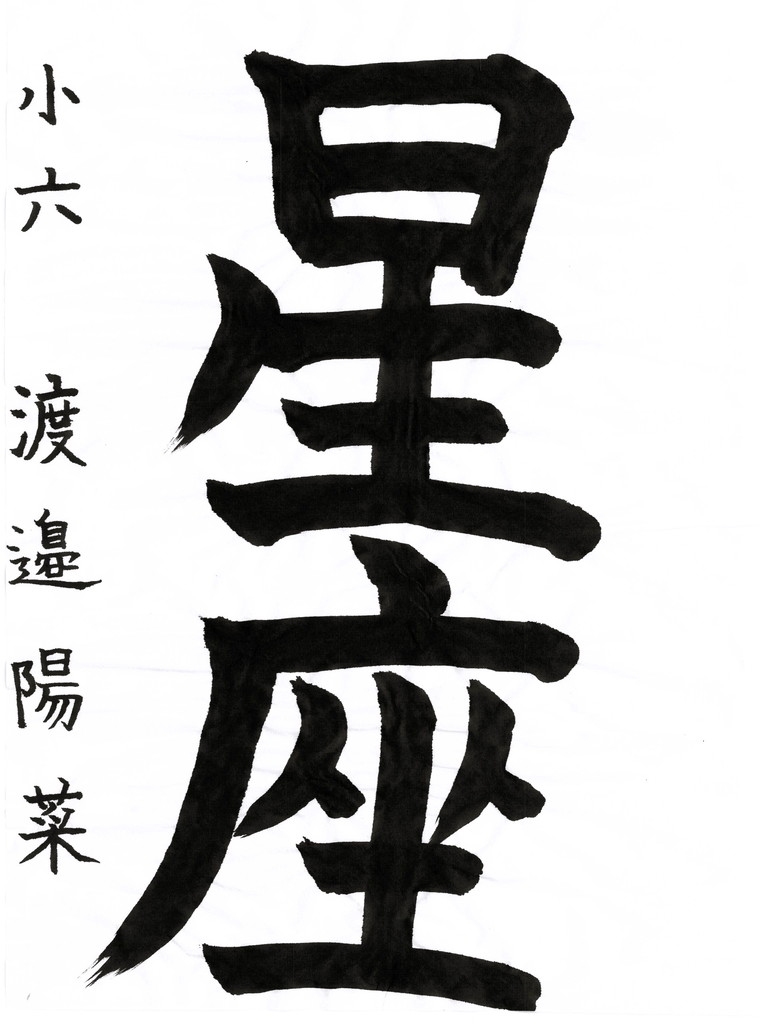 星座
小六 渡邉陽菜